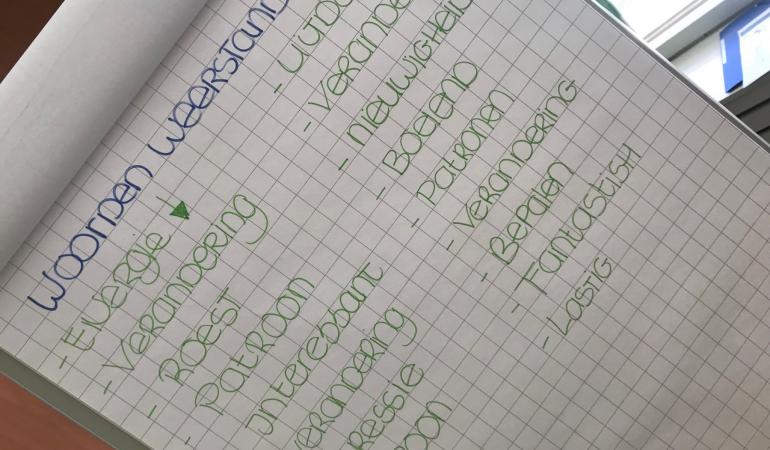 WOORDEN WEERSTAND
- ENERGIE ↓
- VERANDERING
- ROEST
- PATROOM
INTERESSANT
VERANDERING
- NIEUWIGHEID
- BOEIEND
- PATRONEN
- VERANDERING
- BEPALEN
- FANTASTISH
- LASTIG